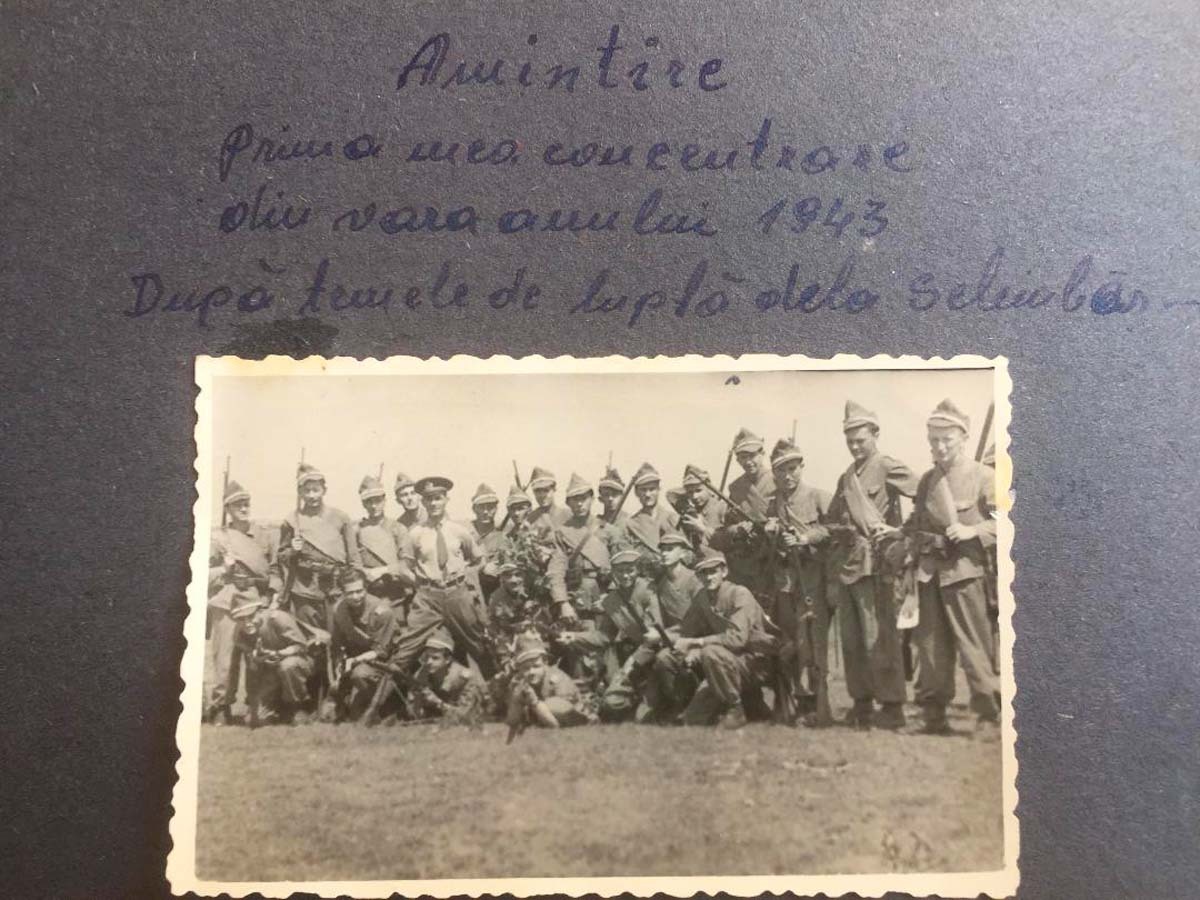 Amintire
Prima mea concentrare
din vara anului 1943
După temele de luptă dela Selimbăr